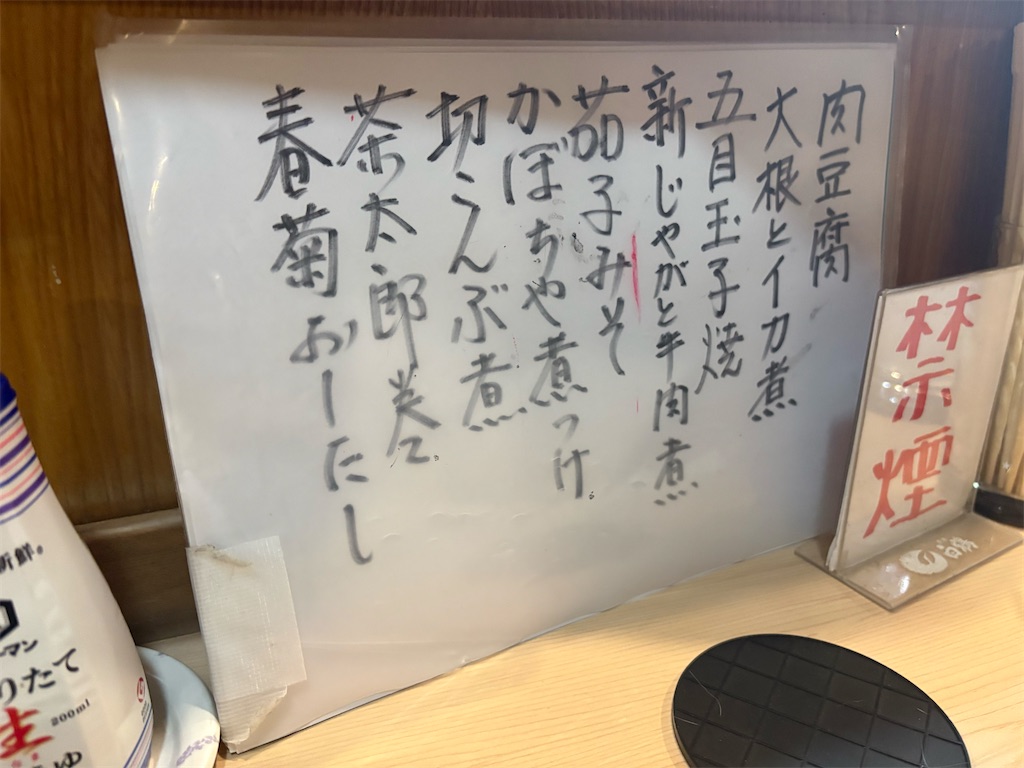 肉豆腐
大根とイカ煮
五目玉子焼
新じゃがと牛肉煮
茄子みそ
かぼちゃ煮つけ
切こんぶ煮
茶太郎巻
春菊おーたし
禁煙
新鮮。
マン
りたて
生
200ml
ゆ